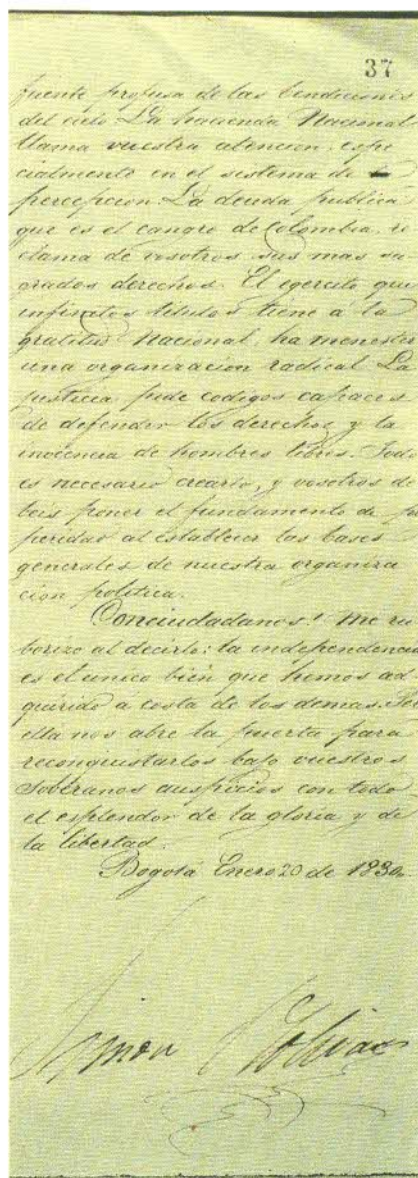 37
fuente profusa de las bendiciones
del cielo. La hacienda Nacional
llama vuestra atencion, espe
cialmente en el sistema de
percepcion. La deuda publica
que es el cangro de Colombia, re
clama de vosotros sus mas sa-
grados derechos. El egercito que
infinitos titulos tiene a la
gratitud Nacional, ha menester
una organizacion radical. La
justicia pide codigos capaces
de defender los derechos y la
inocencia de hombres libres. Todo
es necesario crearlo, y vosotros de
beis poner el fundamento de pros
peridad al establecer las bases
generales de nuestra organiza
cion politica.
Conciudadanos! Me ru
borizo al decirlo: la independencia
es el unico bien que hemos ad-
quirido á costa de los demas. Pero
ella nos abre la puerta para
reconquistarlos bajo vuestros
Soberanos auspicios con todo
el esplendor de la gloria y de
la libertad.
Bogotá Enero 20 de 1830.
Simon Bolivar